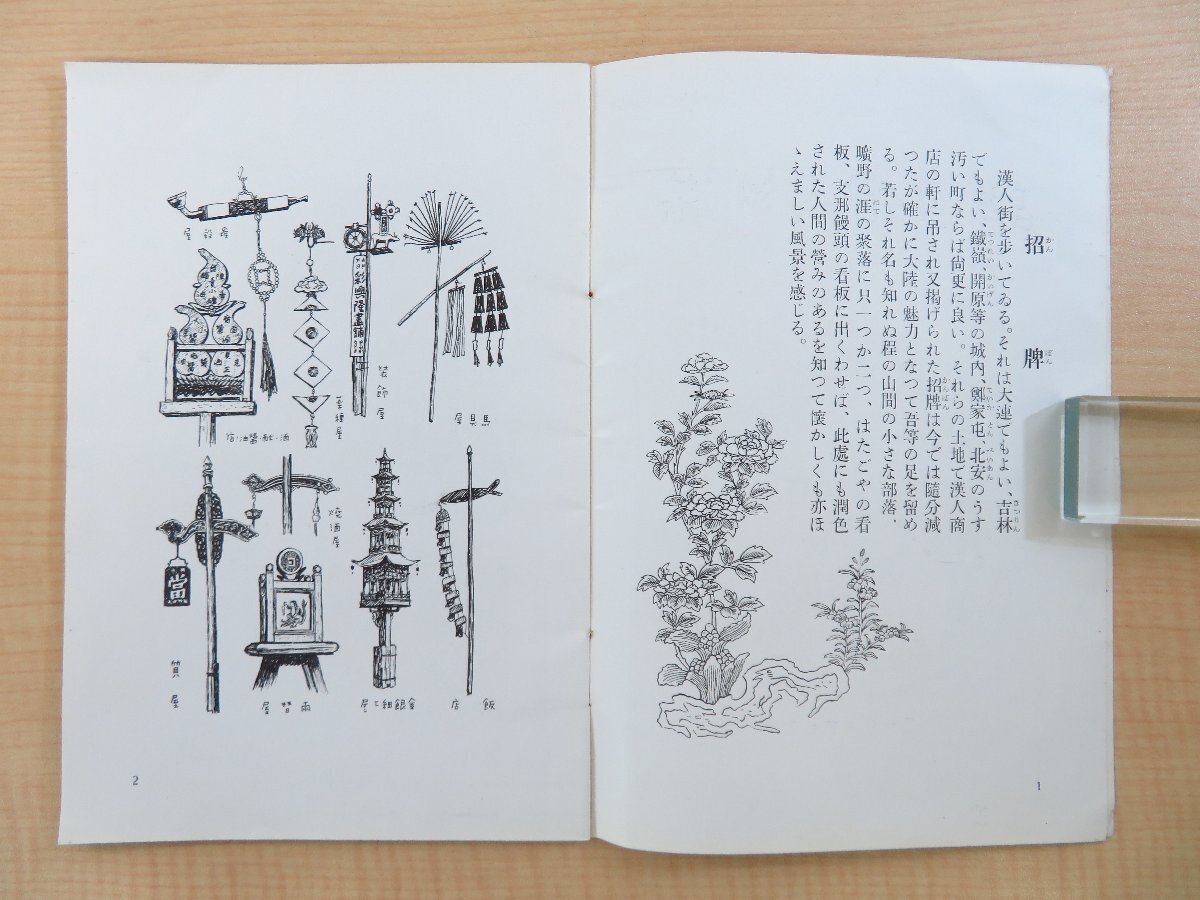 招牌
かんばん
漢人街を歩いてゐる。それは大連でもよい、吉林
でもよい、鐵嶺、開原等の城內、鄭家屯、北安のうす
汚い町ならば尙更に良い。それらの土地で漢人商
店の軒に吊され又揭げられた招牌は今では隨分減
つたが確かに大陸の魅力となつて吾等の足を留め
る。若しそれ名も知れぬ程の山間の小さな部落、
曠野の涯の聚落に只一つか二つ、はたごやの看
板、支那饅頭の看板に出くわせば、此處にも潤色
された人間の營みのあるを知つて懷かしくも亦ほ
ゝえましい風景を感じる。
1
馬具屋
裝飾屋
彩興隆畫鋪
酒・酢・醬油・店
飯店
金銀細工屋
兩替屋
燒酒屋
當
質屋
2